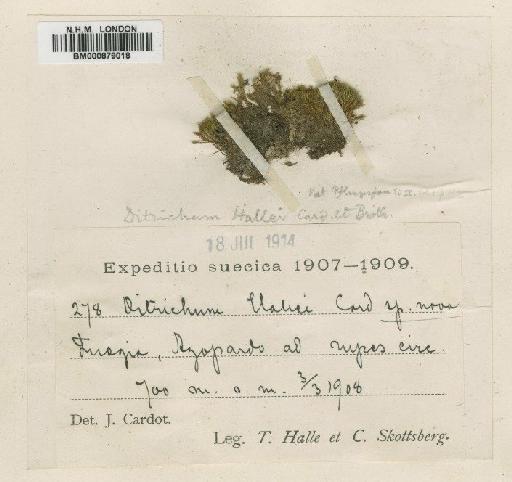 N.H.M. LONDON
BM000879018
Ditrichum Hallei Card et Broth.
18 JUL 1914
Expeditio suecica 1907—1909.
278 Ditrichum Hallei Card sp. nova
Fuegia, Azopardo ad rupes circ.
700 m. s m. 3/3 1908
Det. J. Cardot.
Leg. T. Halle et C. Skottsberg.